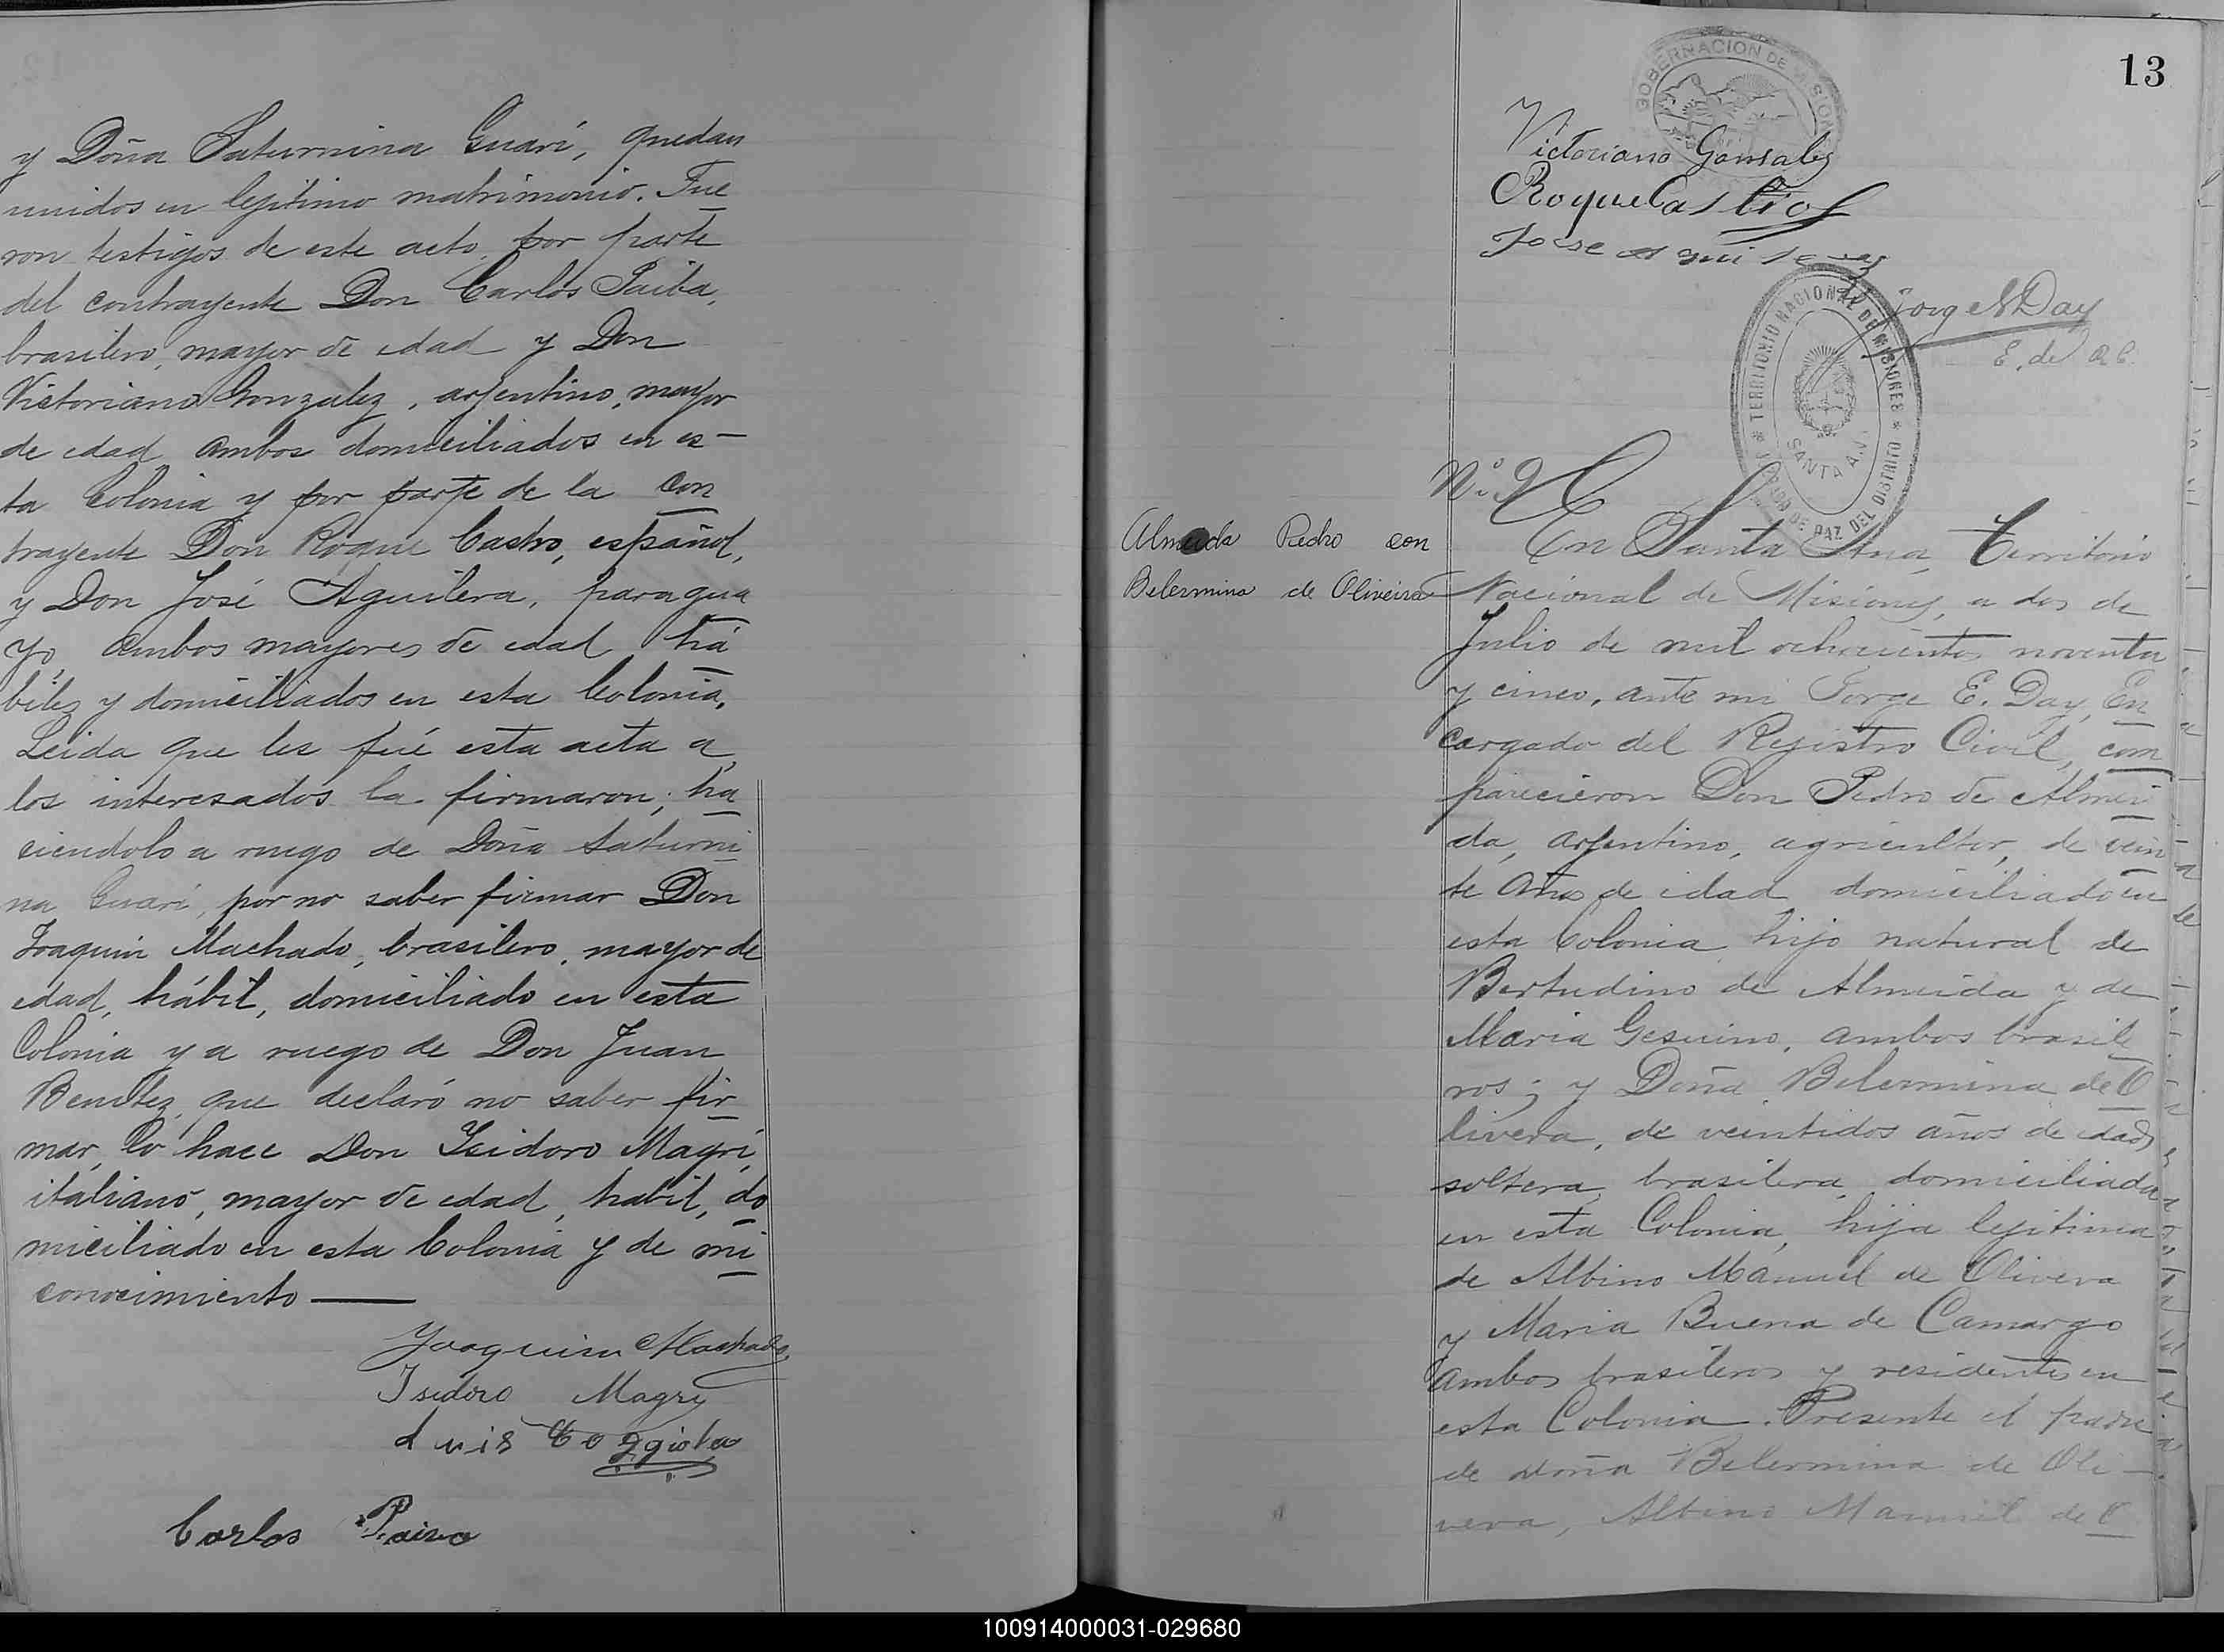 y Doña Saturnina Guari, quedan
unidos en lejitimo matrimonio. Fue
ron testigos de este acto, por parte
del contrayente Don Carlos Paiba,
brasilero, mayor de edad y Don
Victoriano Gonzalez, arjentino, mayor
de edad, ambos domiciliados en es-
ta Colonia y por parte de la con
trayente Don Roque Castro, español,
y Don José Aguilera, paragua
yo, ambos mayores de edad, há
biles y domiciliados en esta Colonia.
Leida que les fué esta acta a
los interesados la firmaron; ha
ciendolo a ruego de Doña Saturni
na Guari, por no saber firmar Don
Joaquin Machado, brasilero, mayor de
edad, hábil, domiciliado en esta
Colonia y a ruego de Don Juan
Benitez, que declaró no saber fir
mar, lo hace Don Isidoro Magri,
italiano, mayor de edad, habil, do
miciliado en esta Colonia y de mi
conocimiento
Joaquin Machado
Isidoro Magry
Luis
Carlos Paiva
13
GOBERNACION DE MISIONES
Victoriano Gonsales
Roque Castro
Jose Aguilera
Jorge E Day
E. del R.C.
TERRITORIO NACIONAL DE MISIONES
JUZGADO DE PAZ DEL DISTRITO
SANTA ANA
N.º 9
Almeida Pedro con
Belermina de Oliveira
En Santa Ana, Territorio
Nacional de Misiones, a dos de
Julio de mil ochocientos noventa
y cinco, ante mi Jorge E. Day, En
cargado del Rejistro Civil, com
parecieron Don Pedro de Almei
da, arjentino, agricultor, de vein
te años de edad domiciliado en
esta Colonia, hijo natural de
Bertudino de Almeida y de
Maria Gesuino, ambos brasile
ros; y Doña Belermina de O
livera, de veintidos años de edad,
soltera, brasilera, domiciliada
en esta Colonia, hija lejitima
de Albino Manuel de Olivera
y Maria Buena de Camargo
ambos brasileros y residentes en
esta Colonia. Presente el padre
de Doña Belermina de Oli-
vera, Albino Manuel de O